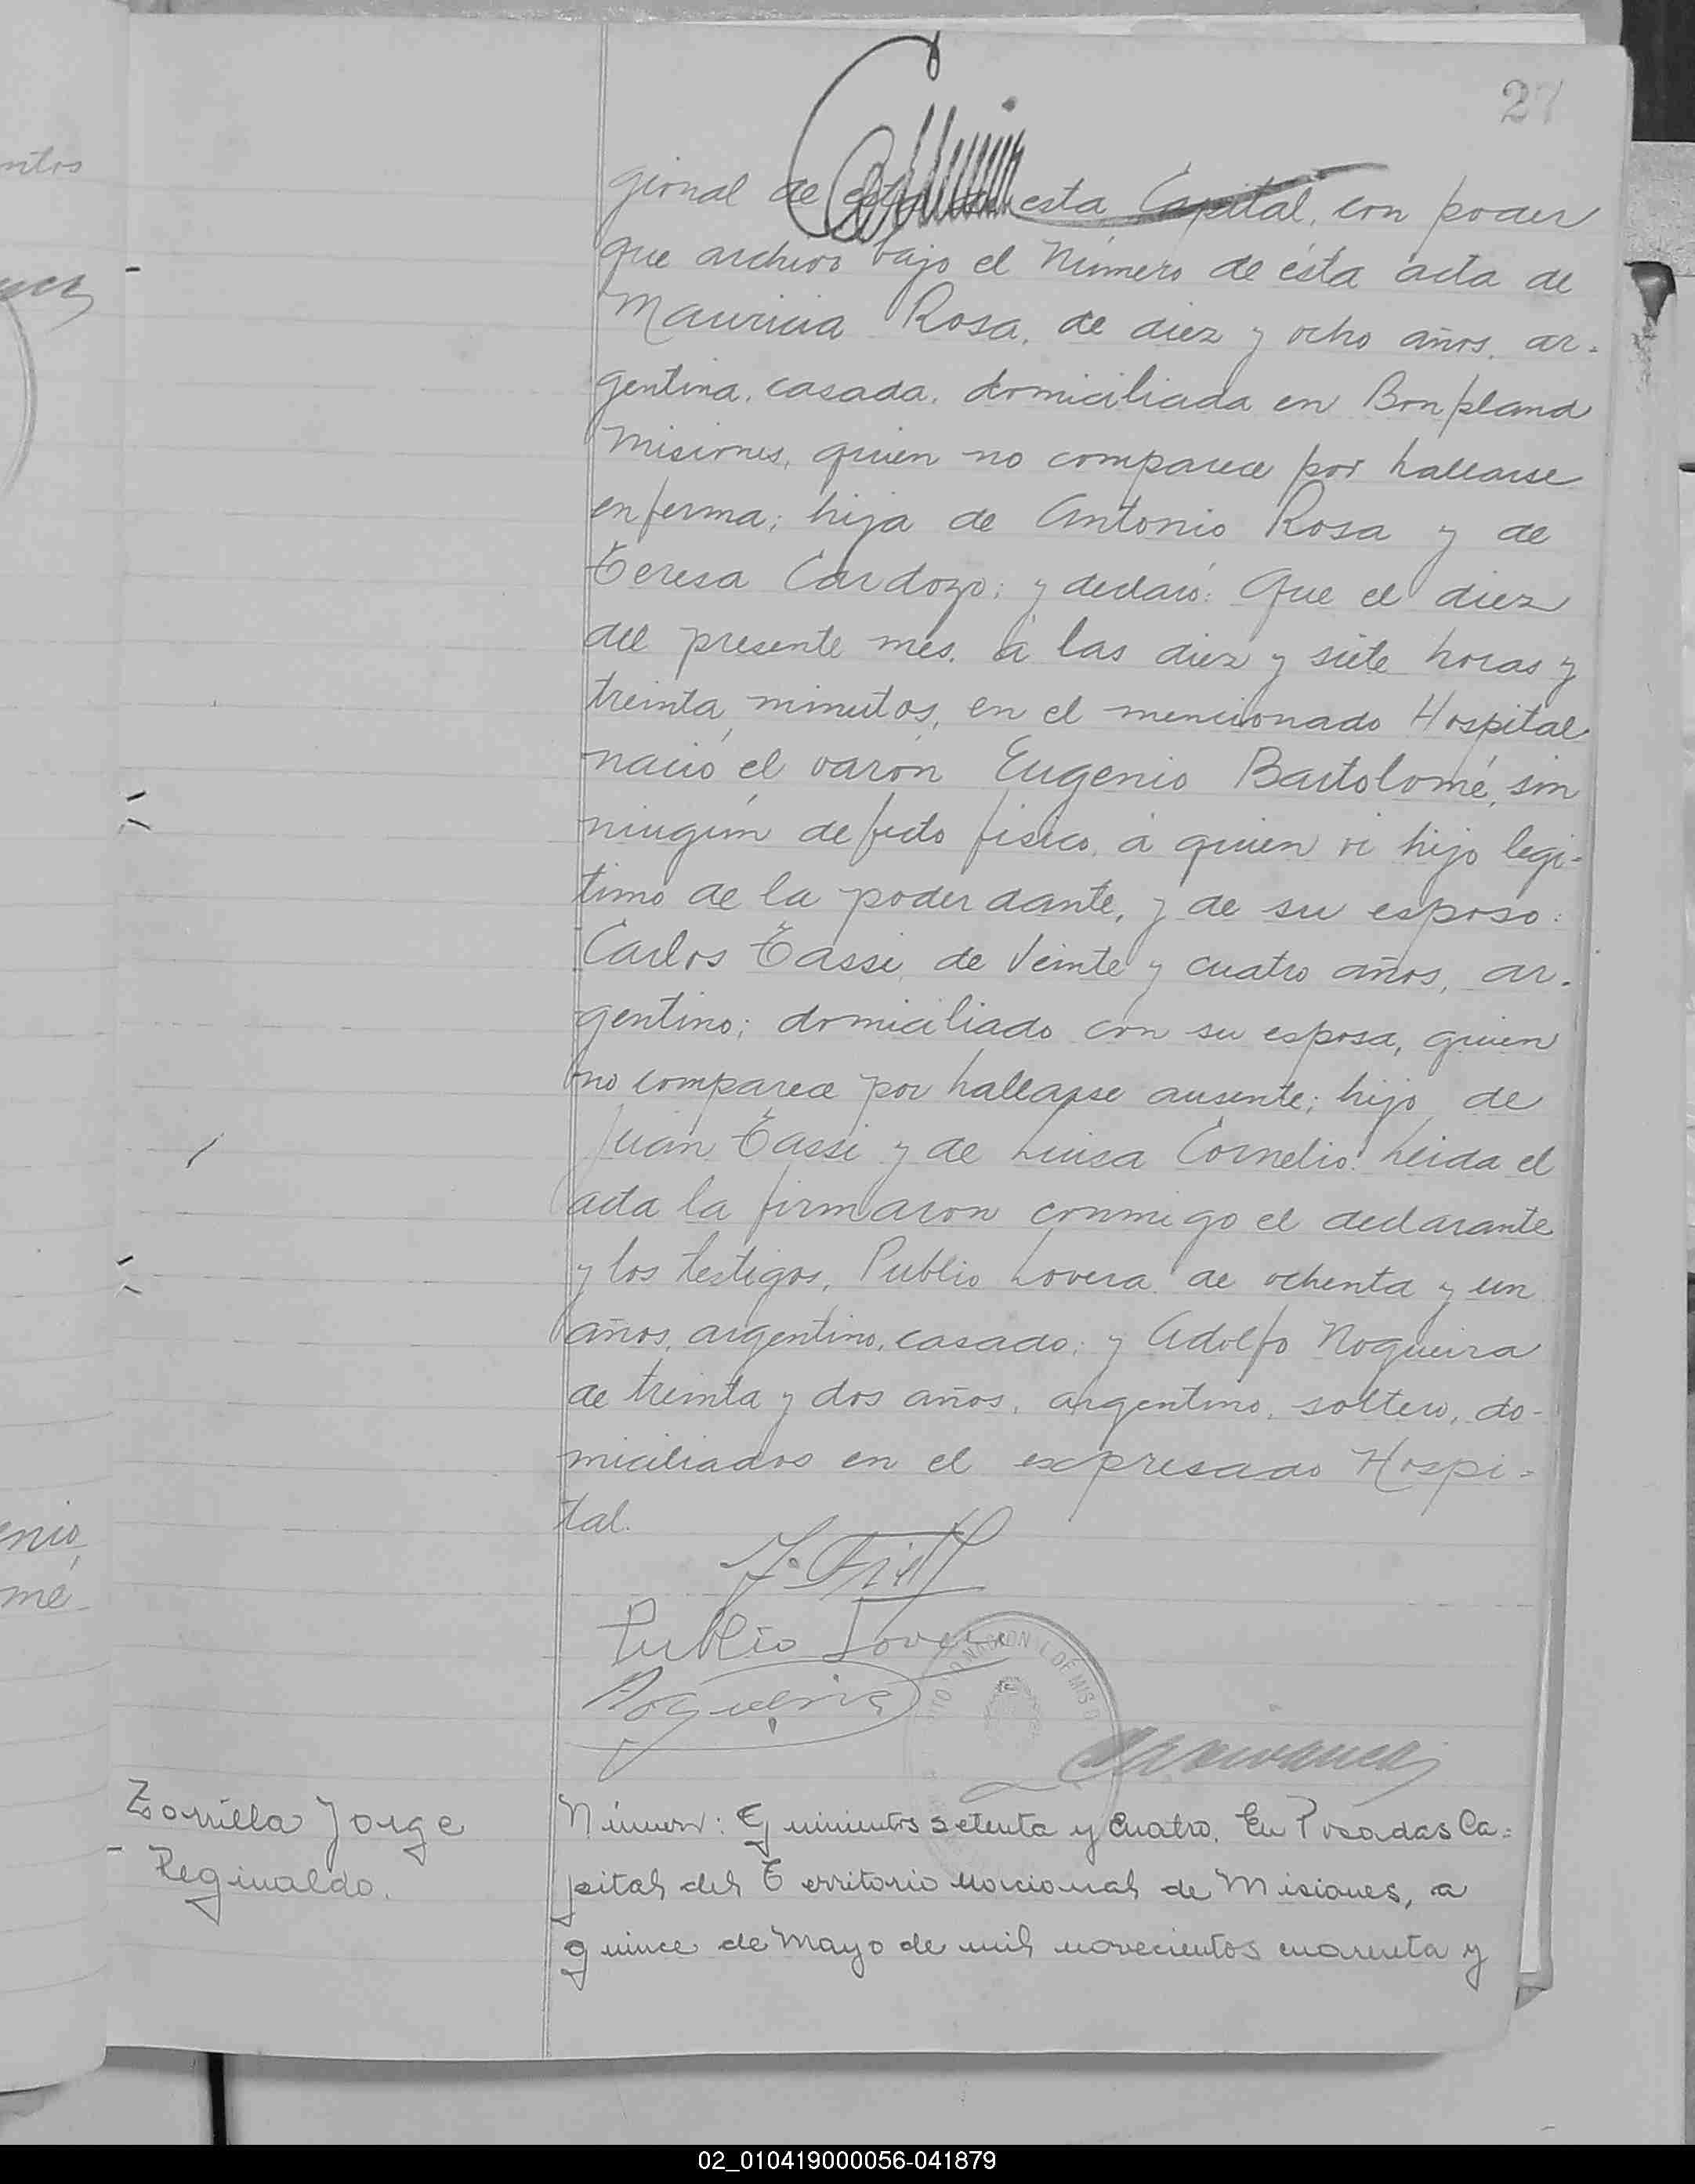 27
ntos
gional de esta Capital, con poder
que archivo bajo el Número de ésta acta de
Mauricia Rosa, de diez y ocho años, ar-
gentina, casada, domiciliada en Bonpland
Misiones, quien no comparece por hallarse
enferma; hija de Antonio Rosa y de
Teresa Cardozo; y declaró: Que el diez
del presente mes, á las diez y siete horas y
treinta minutos, en el mencionado Hospital
nació el varón Eugenio Bartolomé, sin
ningún defecto físico, á quien vi hijo legi-
timo de la poder dante, y de su esposo:
Carlos Tassi, de Veinte y cuatro años, ar-
gentino; domiciliado con su esposa, quien
no comparece por hallarse ausente; hijo de
Juan Tassi y de Luisa Cornelio. Leida el
acta la firmaron conmigo el declarante
y los testigos, Publio Lovera de ochenta y un
años, argentino, casado; y Adolfo Nogueira
de treinta y dos años, argentino, soltero, do-
miciliados en el expresado Hospi-
tal.
enio
mé
Publio Lovera
Nogueira
NACIONAL DE MIS
Zorrilla Jorge
Reginaldo.
Número: Quinientos setenta y cuatro. En Posadas Ca=
pital del Territorio nacional de Misiones, a
quince de Mayo de mil novecientos cuarenta y
02_010419000056-041879